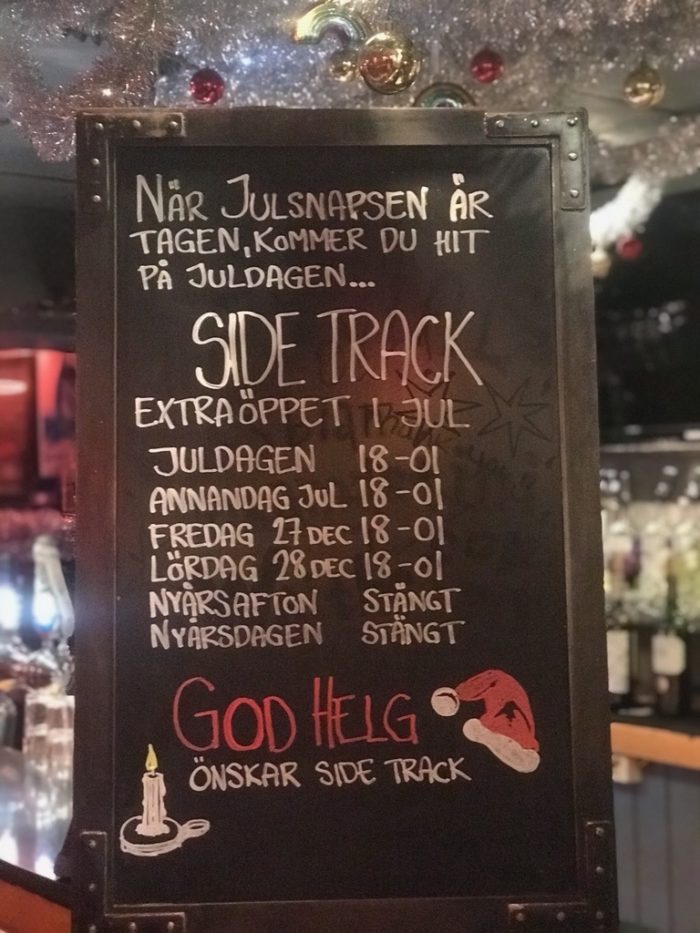 NÄR JULSNAPSEN ÄR
TAGEN, KOMMER DU HIT
PÅ JULDAGEN...
SIDE TRACK
EXTRA ÖPPET I JUL
JULDAGEN 18-01
ANNANDAG JUL 18-01
FREDAG 27 DEC 18-01
LÖRDAG 28 DEC 18-01
NYÅRSAFTON STÄNGT
NYÅRSDAGEN STÄNGT
GOD HELG
ÖNSKAR SIDE TRACK